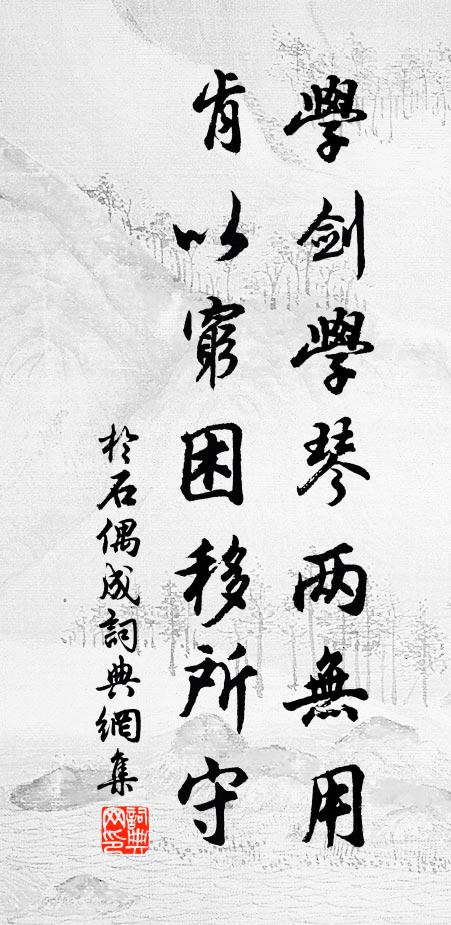 學劍學琴两無用
肯以窮困移所守
於石偶成詞典網集
詞典网印